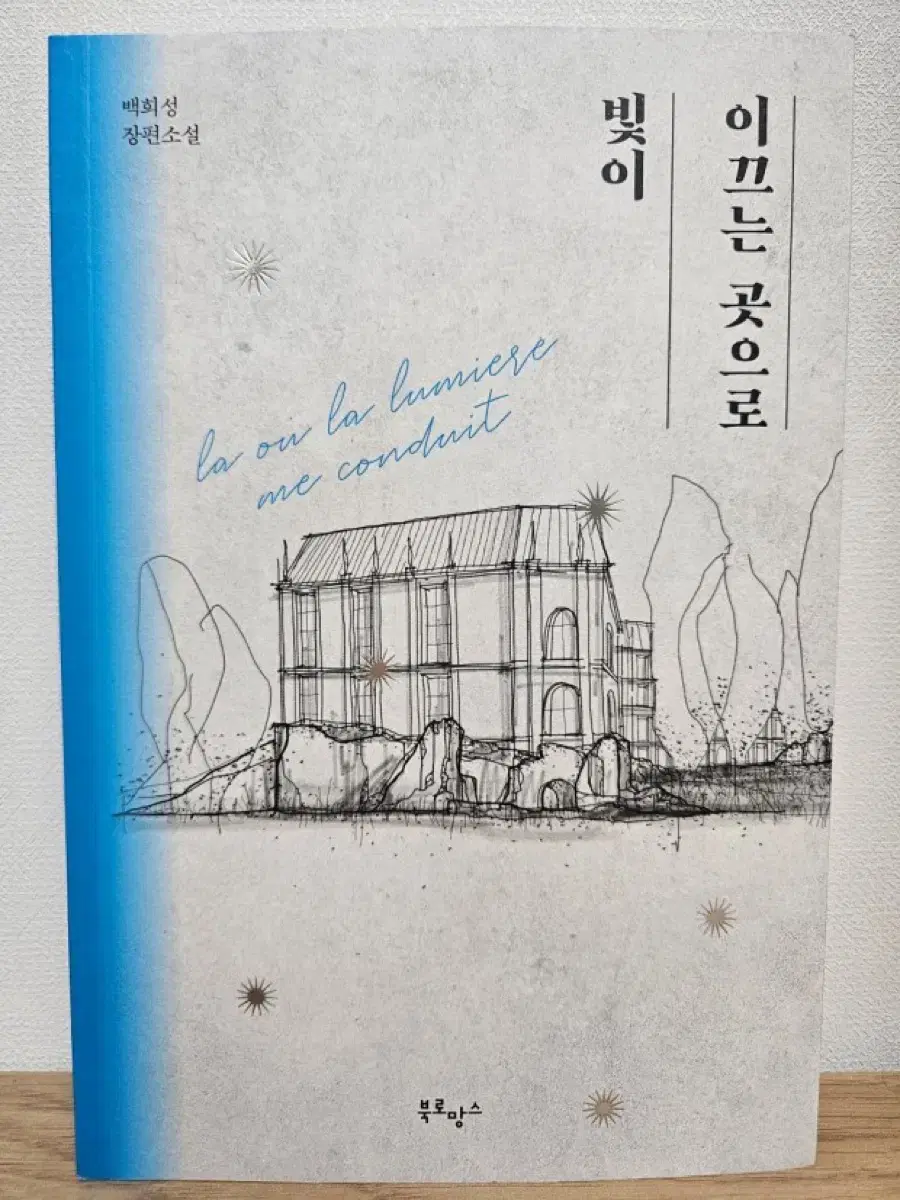 백희성
장편소설
빛이
이끄는 곳으로
la ou la lumiere
me conduit
북로망스